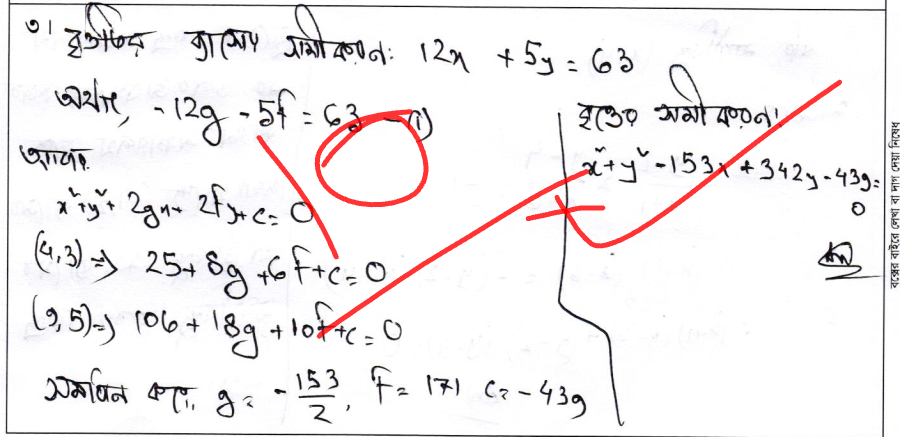 ৩। বৃত্তটির ব্যাসের সমীকরণ: 12x + 5y = 63
অর্থাৎ, -12g - 5f = 63 —(i)
আবার
x² + y² + 2gx + 2fy + c = 0
(4,3) => 25 + 8g + 6f + c = 0
(9,5) => 106 + 18g + 10f + c = 0
সমাধান করে, g = -153/2, f = 171 c = -439
বৃত্তের সমীকরণ:
x² + y² - 153x + 342y - 439 =
0
বক্সের বাইরে লেখা বা দাগ দেয়া নিষেধ